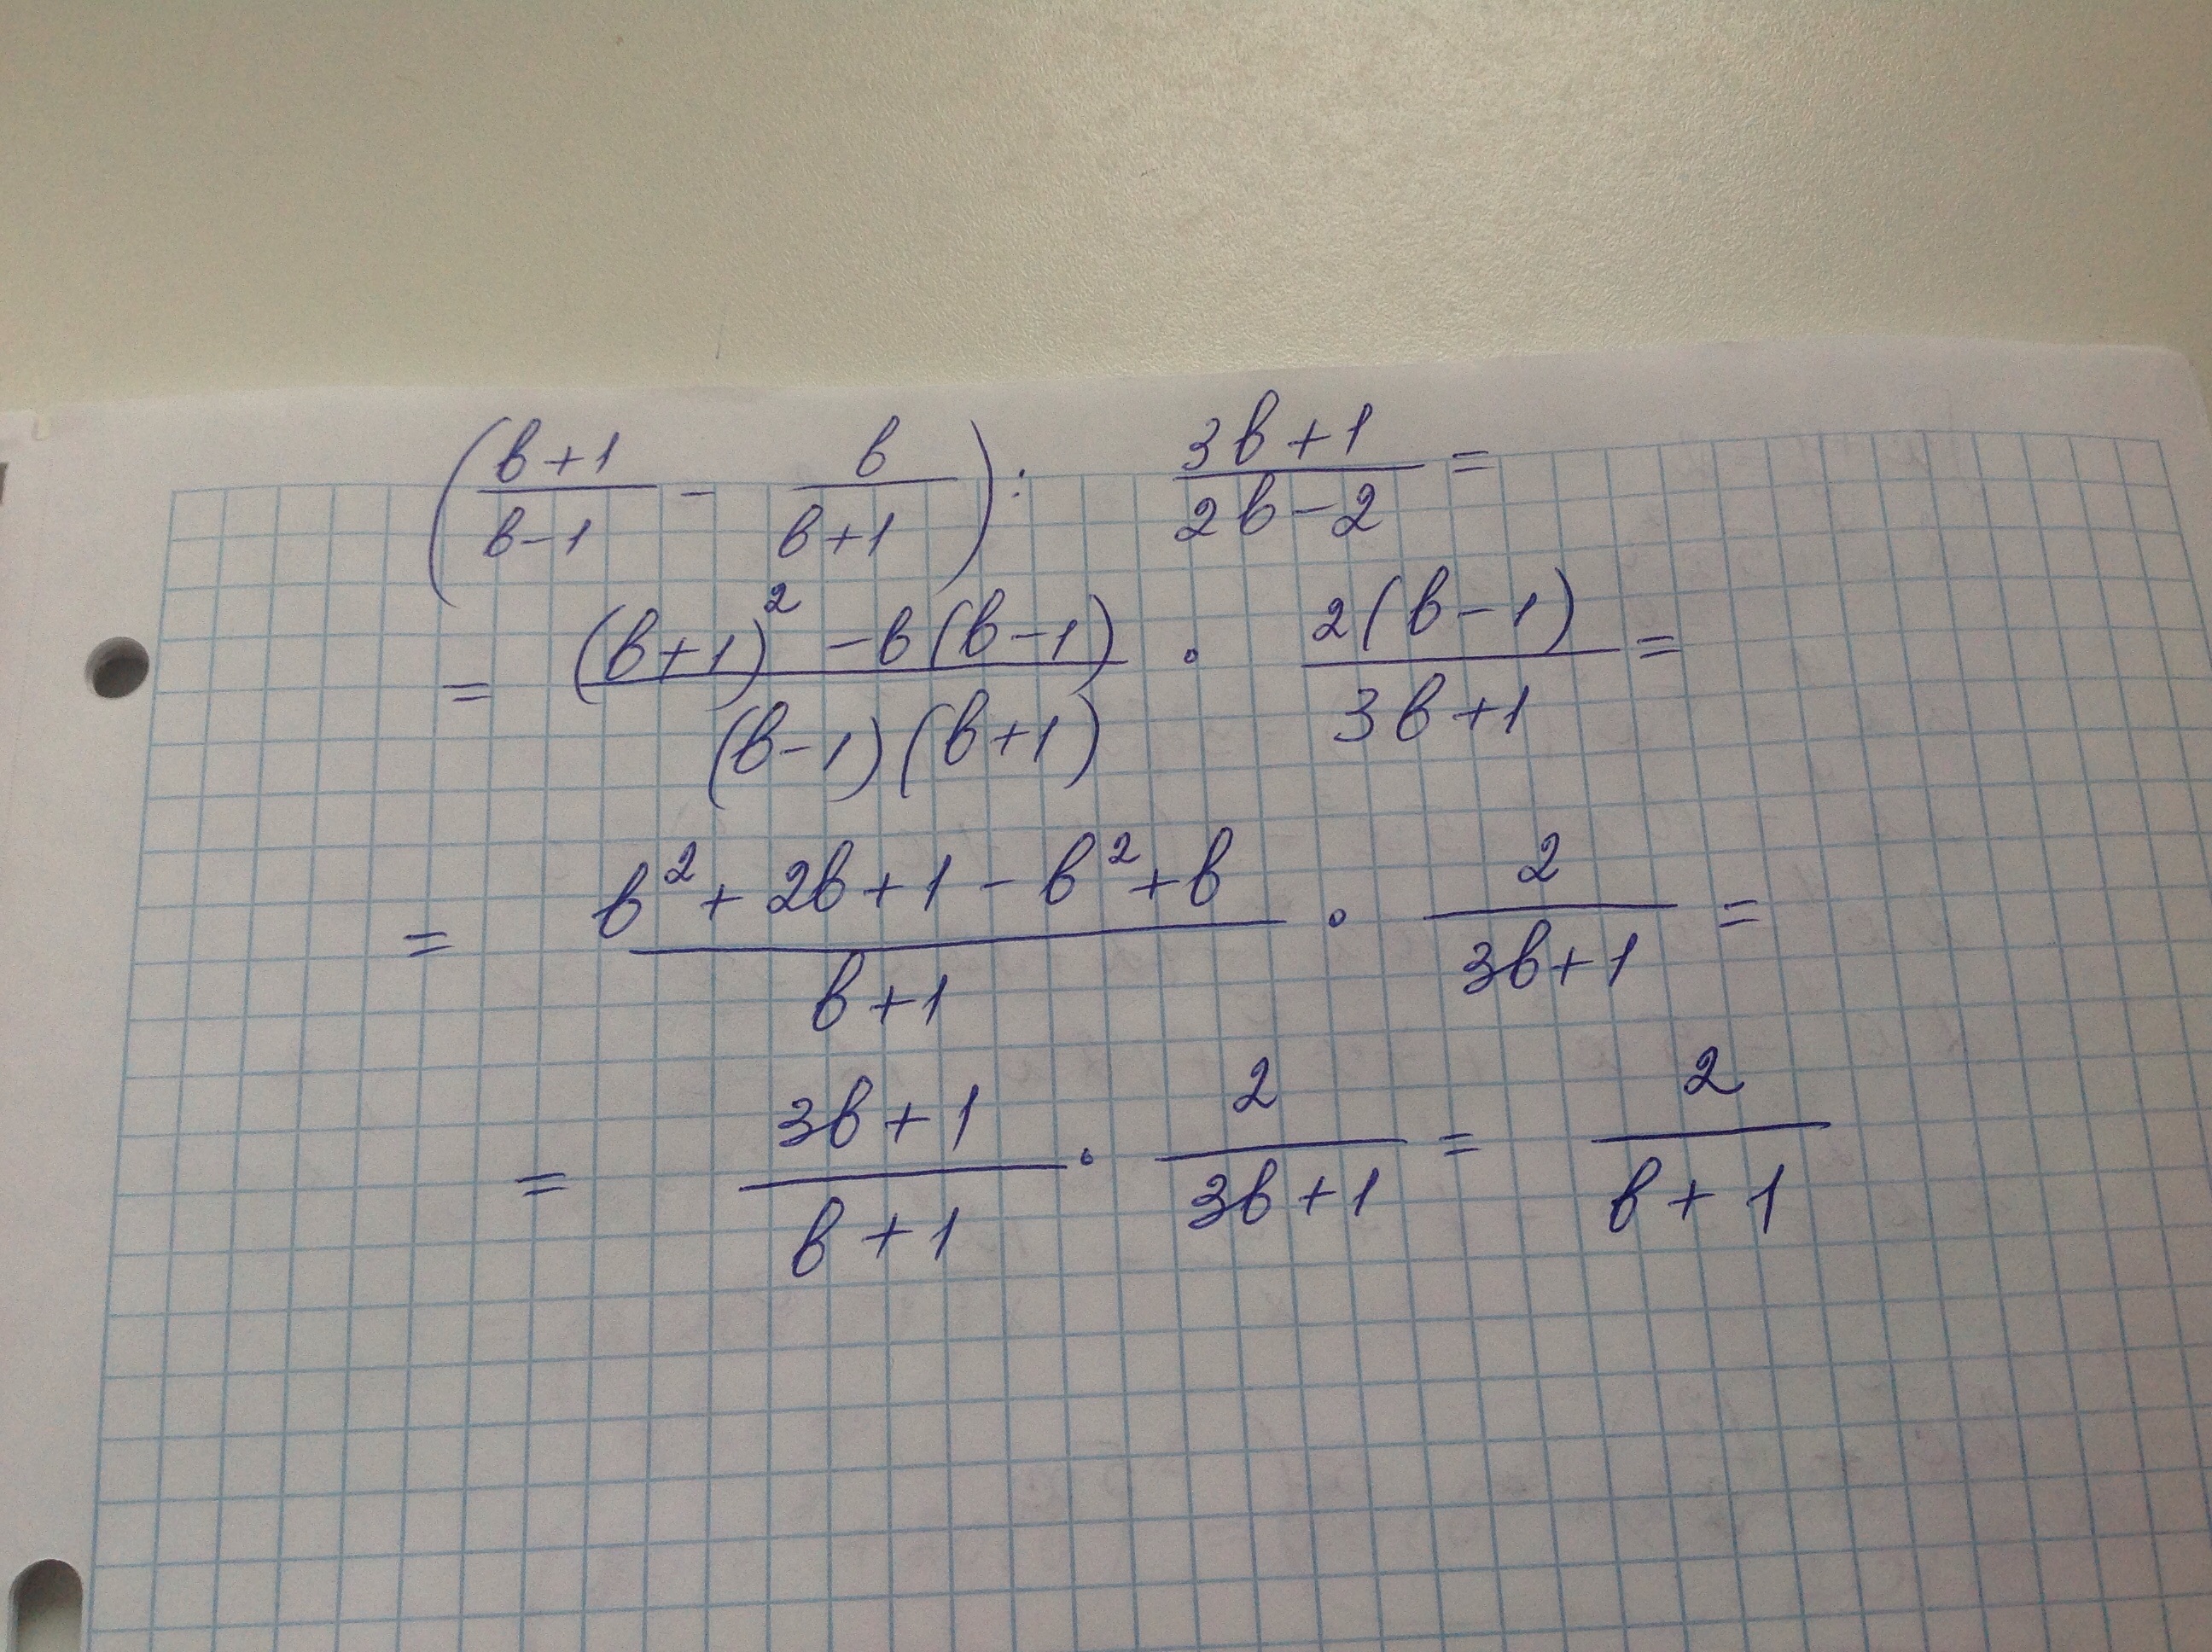 (b+1/b-1 - b/b+1) : 3b+1/2b-2 =
= (b+1)² - b(b-1)/(b-1)(b+1) · 2(b-1)/3b+1 =
= b² + 2b + 1 - b² + b/b+1 · 2/3b+1 =
= 3b+1/b+1 · 2/3b+1 = 2/b+1